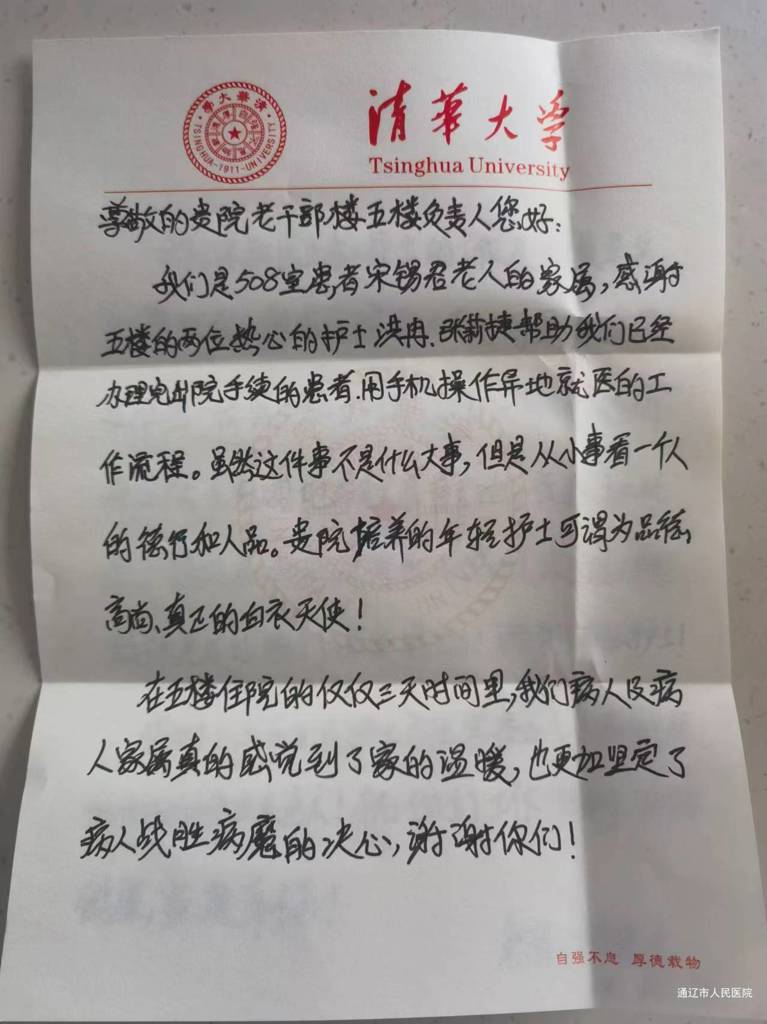 清華大學
TSINGHUA-1911-UNIVERSITY
清華大学
Tsinghua University
尊敬的贵院老干部楼五楼负责人您好:
我们是508室患者宋锡君老人的家属,感谢
五楼的两位热心的护士洪冉、张莉捷帮助我们已经
办理完出院手续的患者.用手机操作异地就医的工
作流程。虽然这件事不是什么大事,但是从小事看一个人
的德行和人品。贵院培养的年轻护士可谓为品德
高尚、真正的白衣天使!
在五楼住院的仅仅三天时间里,我们病人及病
人家属真的感觉到了家的温暖,也更加坚定了
病人战胜病魔的决心,谢谢你们!
自强不息 厚德载物
通辽市人民医院